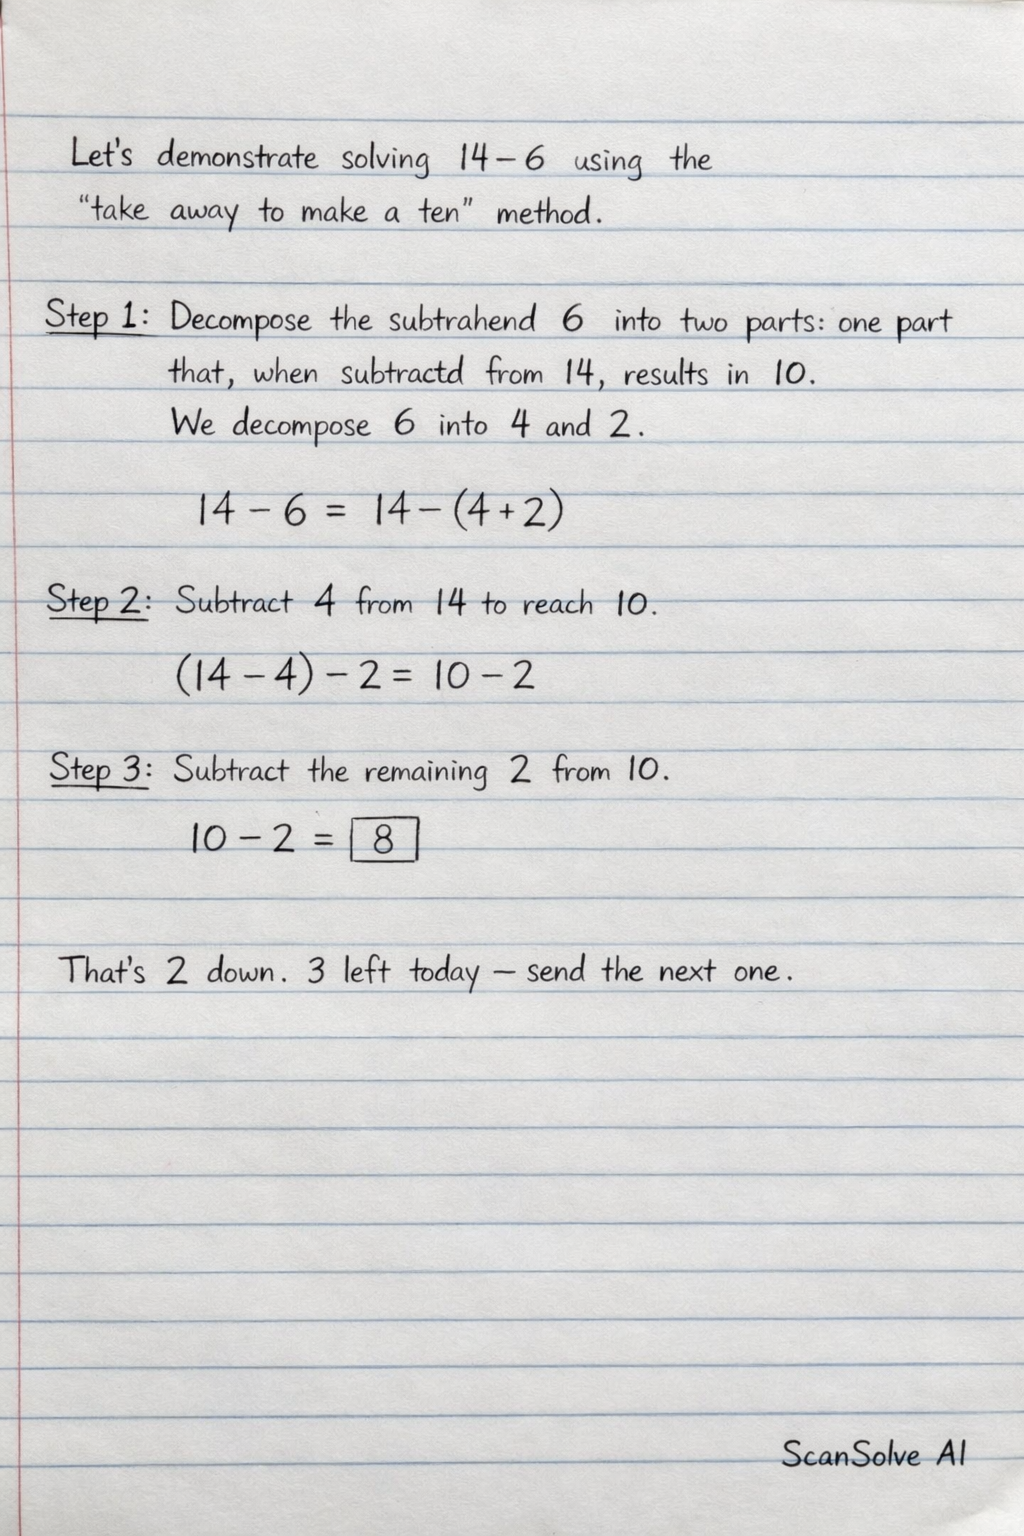 Let's demonstrate solving 14 - 6 using the
"take away to make a ten" method.
Step 1: Decompose the subtrahend 6 into two parts: one part
that, when subtractd from 14, results in 10.
We decompose 6 into 4 and 2.
14 - 6 = 14 - (4 + 2)
Step 2: Subtract 4 from 14 to reach 10.
(14 - 4) - 2 = 10 - 2
Step 3: Subtract the remaining 2 from 10.
10 - 2 = 8
That's 2 down. 3 left today – send the next one.
ScanSolve AI